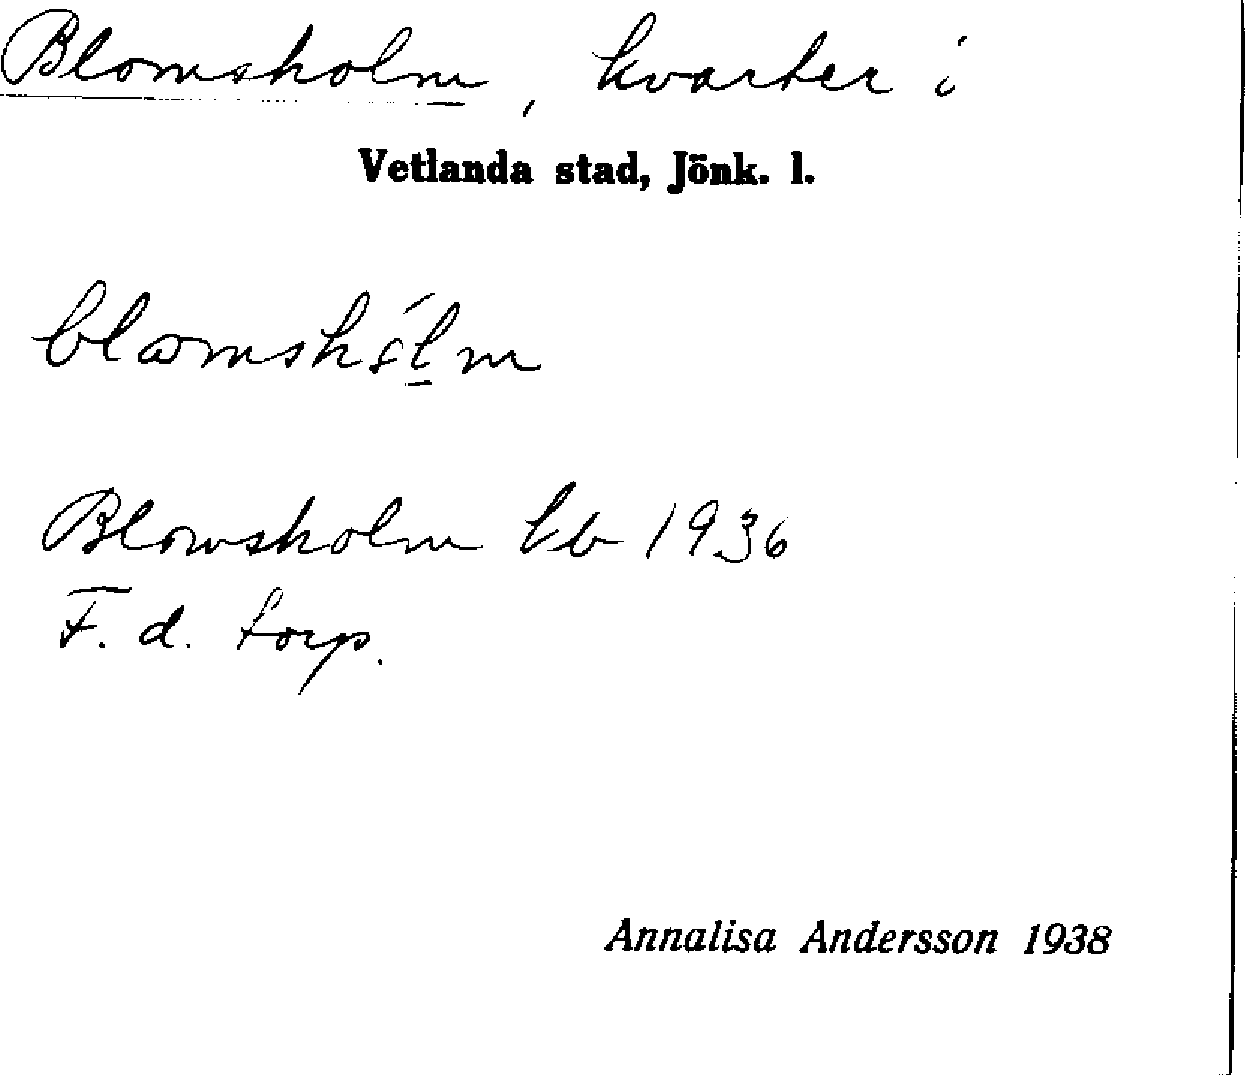 Blomsholm, kvarter i
Vetlanda stad, Jönk. l.
blomshól̲m
Blomsholm lb 1936
F. d. torp.
Annalisa Andersson 1938